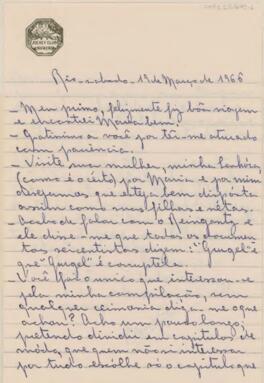 JOCKEY CLUB
Rio - sabado - 19 de Março de 1966
- Meu primo, felizmente fiz bôa viagem
e encontrei Maria bem.
- Gratissimo a você por têr-me aturado
com paciencia.
- Visite sua mulher, minha Senhora,
(como é o certo) por Maria e por mim
desejamos que esteja bem disposta
assim como suas filhas e nétas.
- Acabo de falar com o Reingantz,
ele disse-me que todos os documen-
tos seicentistas dizem: "Gurgel" e
que "Gurgel" é corruptela.
- Você é o unico que interessou-se
pela minha compilação, sem
qualquer cerimonia diga-me o que
achou? Acho um pouco longo,
pretendo dividir em capitulos de
módo, que quem não si interessar
por tudo escolhe só o capitulo que